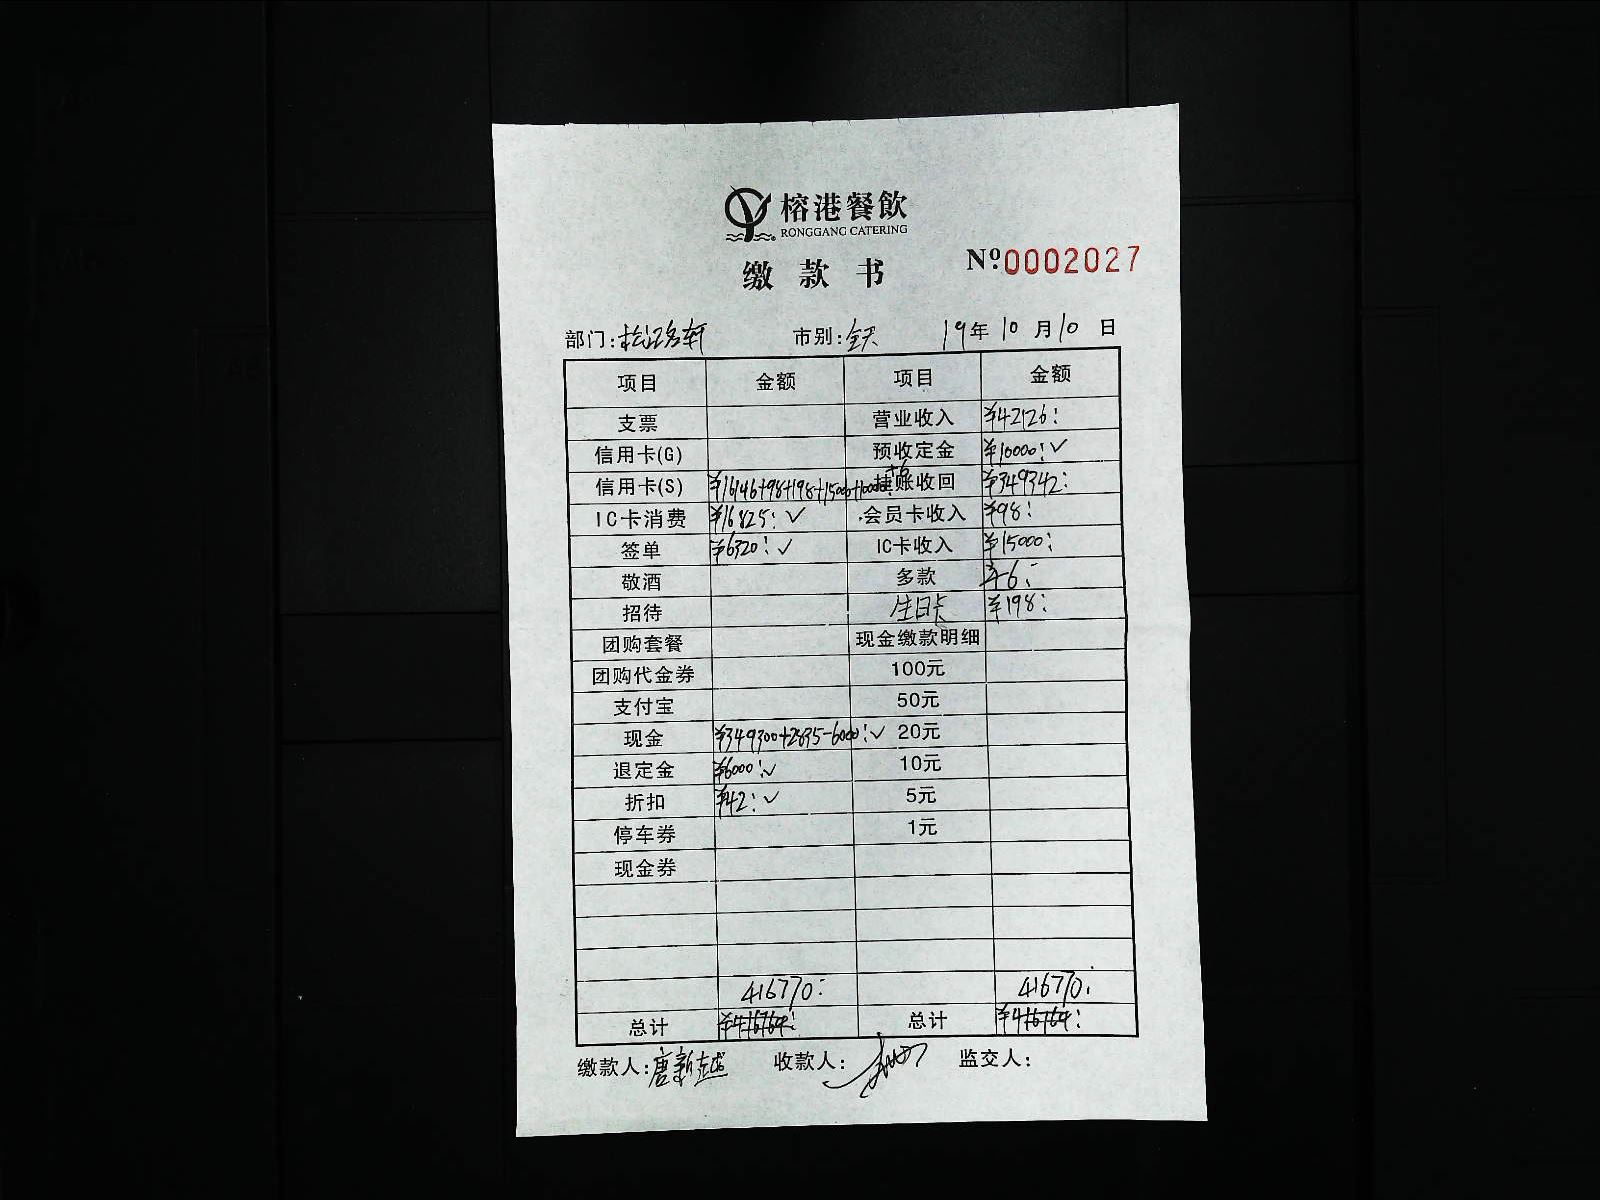 榕港餐飲
RONGGANG CATERING
缴款书
Nº:0002027
部门: 市别:全天 19年10月10日
项目 金额 项目 金额
支票 营业收入 ¥42126:
信用卡(G) 预收定金 ¥10000:✓
信用卡(S) ¥16146+98+198+15000+10000+6 挂账收回 ¥349342:
IC卡消费 ¥16825:✓ 会员卡收入 ¥98:
签单 ¥6320:✓ IC卡收入 ¥15000:
敬酒 多款 ¥6:
招待 生日卡 ¥198:
团购套餐 现金缴款明细
团购代金券 100元
支付宝 50元
现金 ¥349300+2835-6000:✓ 20元
退定金 ¥6000:✓ 10元
折扣 ¥42:✓ 5元
停车券 1元
现金券
416770: 416770:
总计 ¥416764: 总计 ¥416764:
缴款人:唐新越 收款人: 监交人: